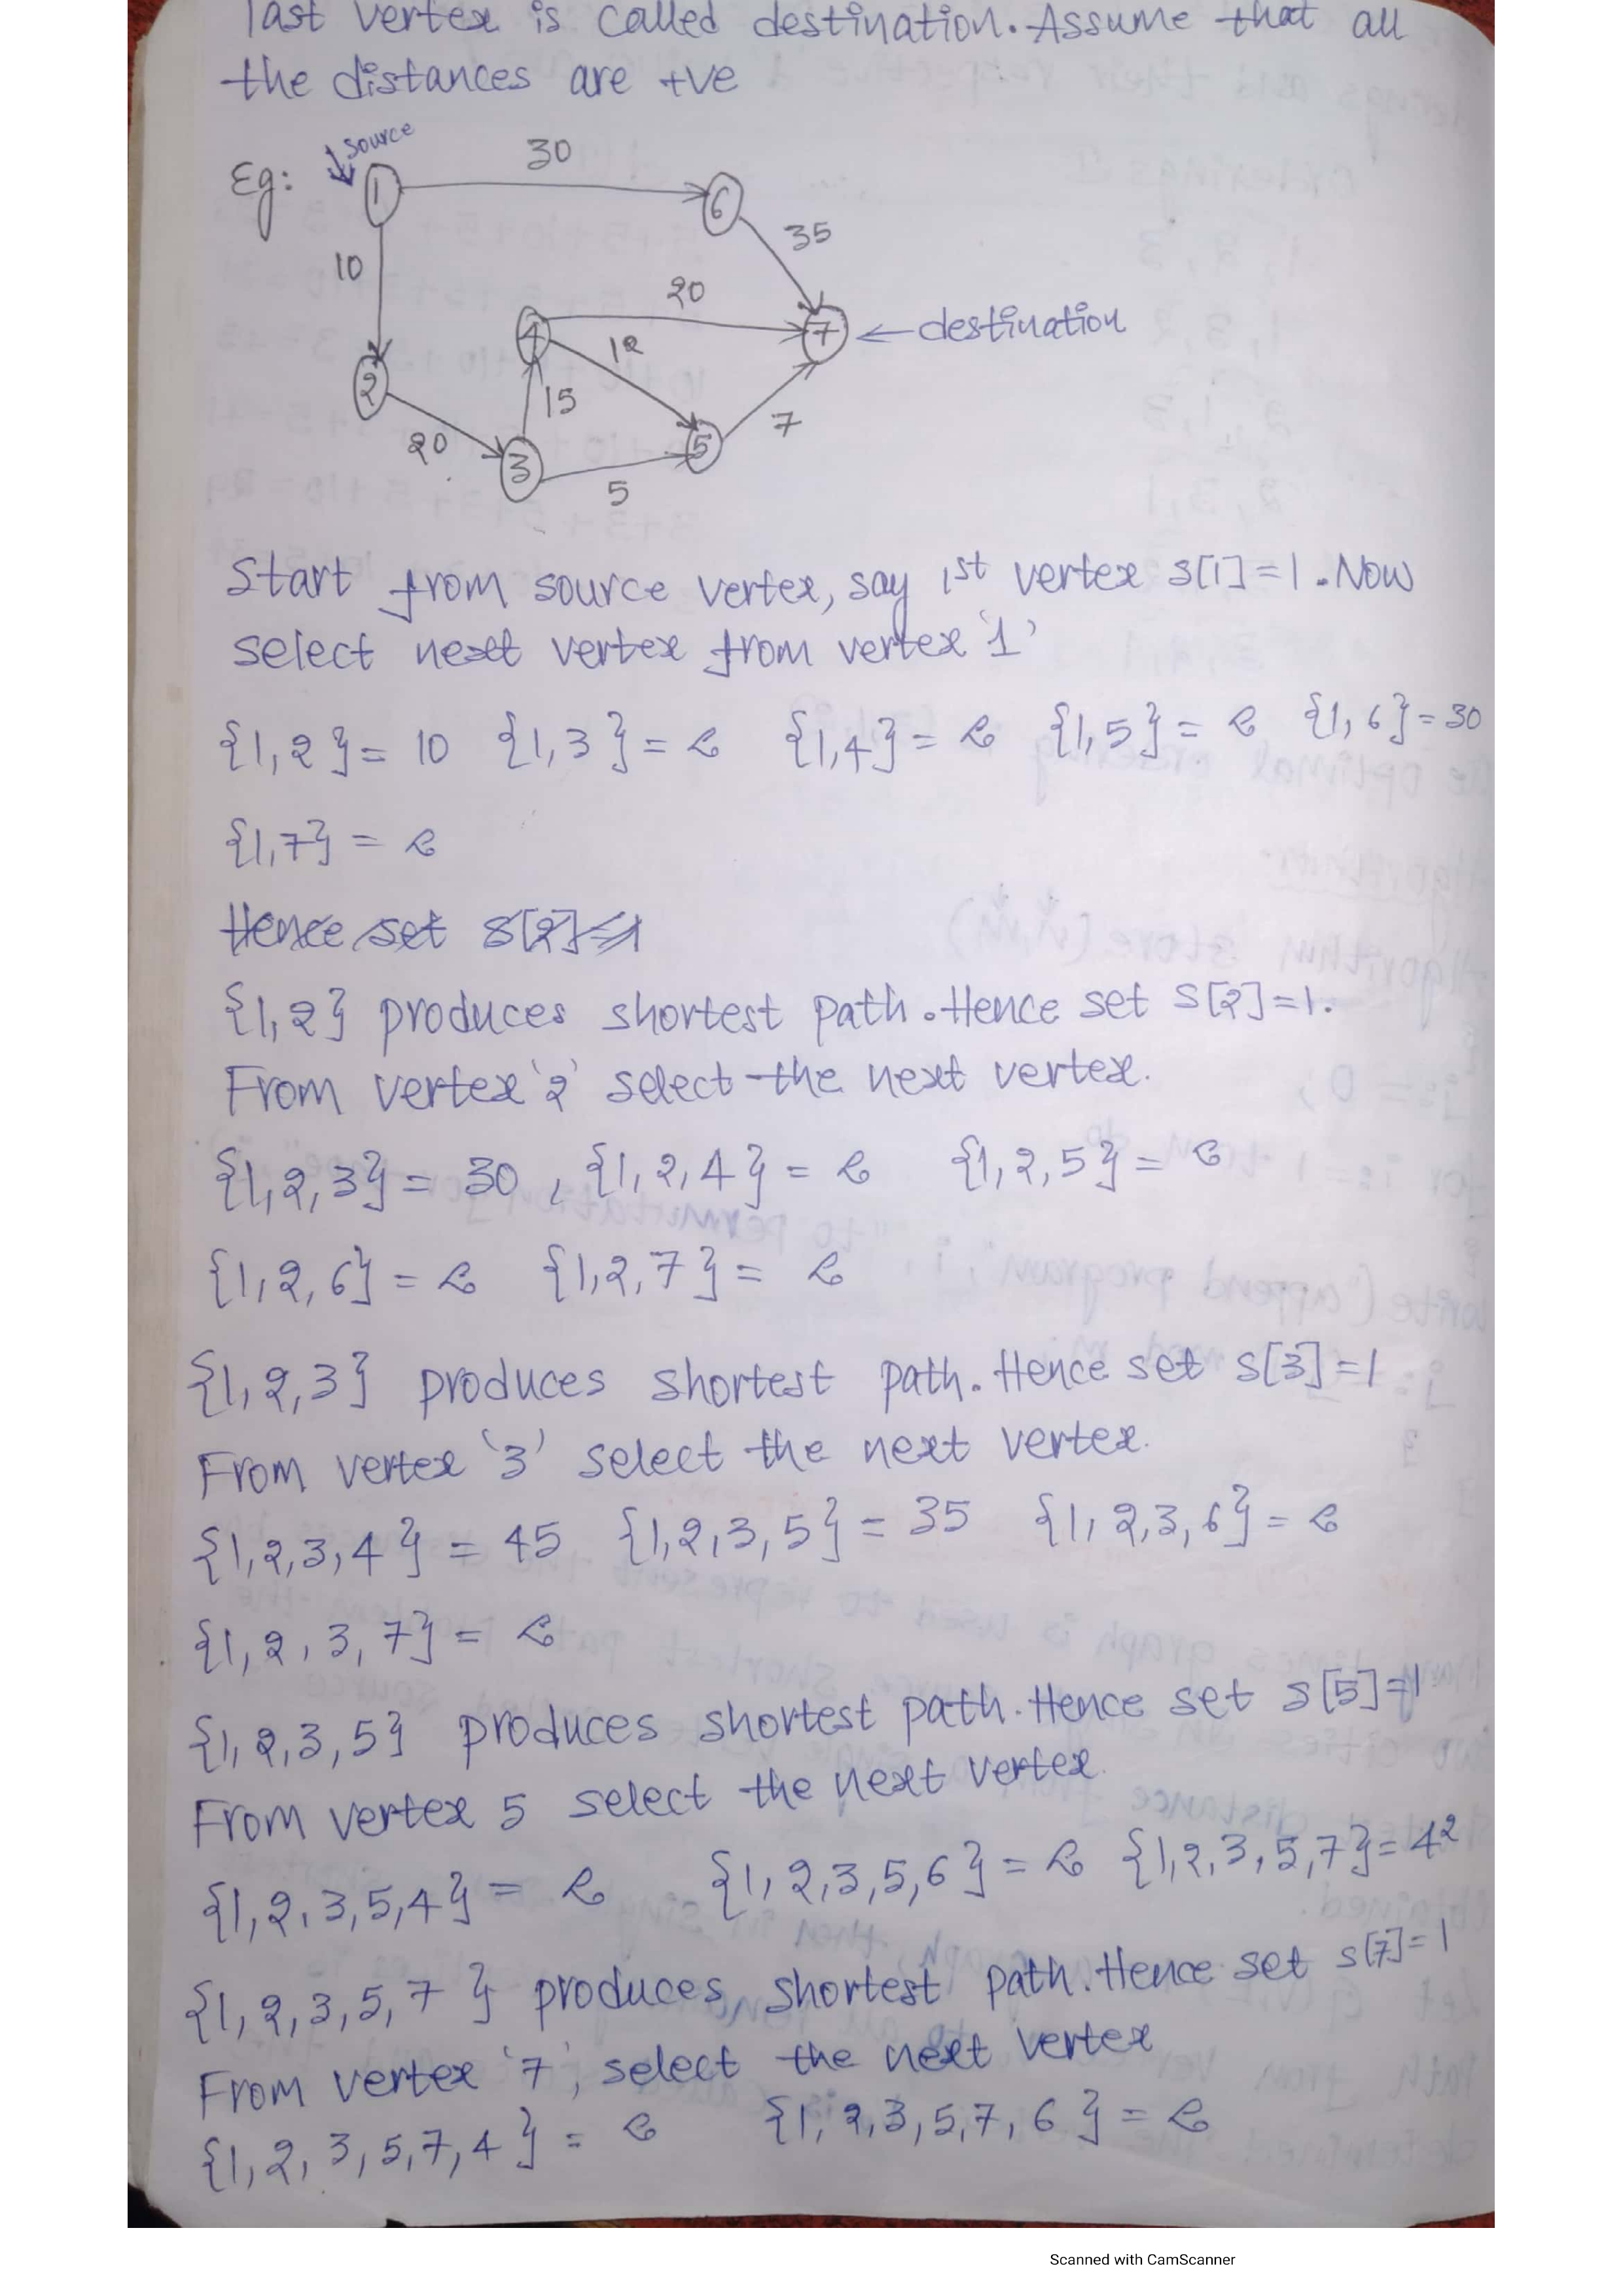 last vertex is called destination. Assume that all
the distances are +ve
Eg:
source
1
30
6
35
10
20
4
12
7
← destination
2
15
20
3
5
5
7
Start from source vertex, say 1st vertex s[1]=1. Now
select next vertex from vertex '1'
{1,2} = 10 {1,3} = ∞ {1,4} = ∞ {1,5} = ∞ {1,6} = 30
{1,7} = ∞
Hence set s[2]=1
{1,2} produces shortest path. Hence set s[2]=1.
From vertex '2' select the next vertex.
{1,2,3} = 30, {1,2,4} = ∞ {1,2,5} = ∞
{1,2,6} = ∞ {1,2,7} = ∞
{1,2,3} produces shortest path. Hence set s[3]=1
From vertex '3' select the next vertex.
{1,2,3,4} = 45 {1,2,3,5} = 35 {1,2,3,6} = ∞
{1,2,3,7} = ∞
{1,2,3,5} produces shortest path. Hence set s[5]=1
From vertex 5 select the next vertex.
{1,2,3,5,4} = ∞ {1,2,3,5,6} = ∞ {1,2,3,5,7} = 42
{1,2,3,5,7} produces shortest path. Hence set s[7]=1
From vertex '7', select the next vertex
{1,2,3,5,7,4} = ∞ {1,2,3,5,7,6} = ∞
Scanned with CamScanner